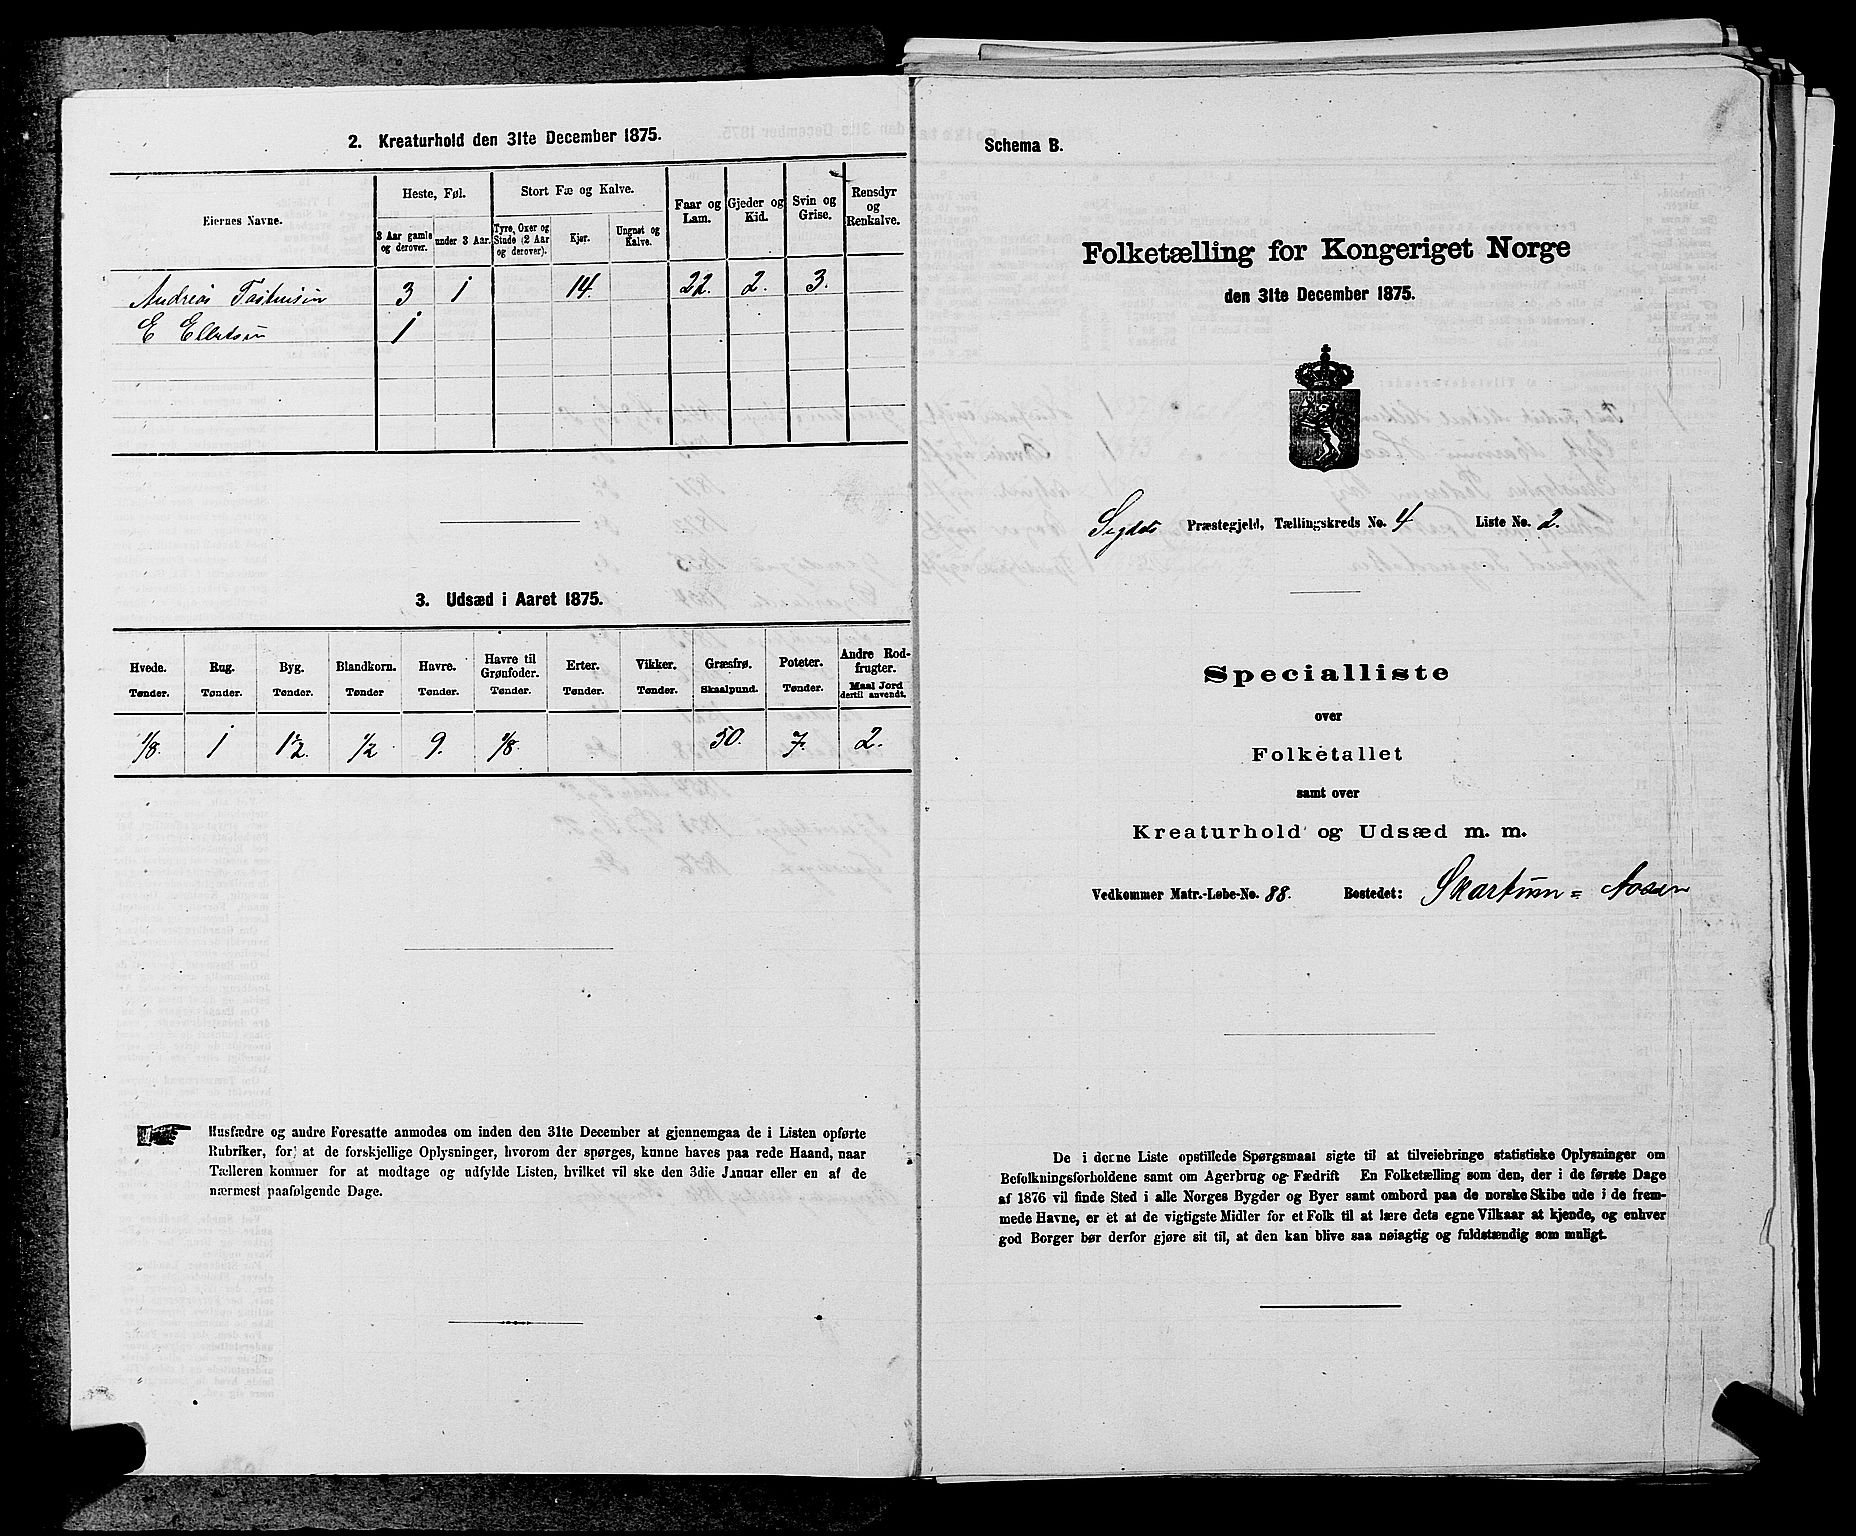 2. Kreaturhold den 31te December 1875.
Eiernes Navne.
Heste, Føl.
Stort Fæ og Kalve.
Faar og Lam.
Gjeder og Kid.
Svin og Grise.
Rensdyr og Renkalve.
3 Aar gamle og derover.
under 3 Aar.
Tyre, Oxer og Stude (2 Aar og derover).
Kjør.
Ungnøt og Kalve.
Andreas 3 1 14. 22. 2. 3.
E 1
3. Udsæd i Aaret 1875.
Hvede. Rug. Byg. Blandkorn. Havre. Havre til Grønfoder. Erter. Vikker. Græsfrø. Poteter. Andre Rodfrugter.
Tønder. Tønder. Tønder. Tønder Tønder. Tønder. Tønder. Tønder. Skaalpund. Tønder. Maal Jord dertil anvendt.
1/8. 1 1½. 1/2 9. 1/8. 50. 7. 2.
Husfædre og andre Foresatte anmodes om inden den 31te December at gjennemgaa de i Listen opførte
Rubriker, for at de forskjellige Oplysninger, hvorom der spørges, kunne haves paa rede Haand, naar
Tælleren kommer for at modtage og udfylde Listen, hvilket vil ske den 3die Januar eller en af de
nærmest paafølgende Dage.
Schema B.
Folketælling for Kongeriget Norge
den 31te December 1875.
Sigdal Præstegjeld, Tællingskreds No. 4 Liste No. 2.
Specialliste
over
Folketallet
samt over
Kreaturhold og Udsæd m. m.
Vedkommer Matr.-Løbe-No. 88. Bostedet: Skartum = Aasen
De i denne Liste opstillede Spørgsmaal sigte til at tilveiebringe statistiske Oplysninger om
Befolkningsforholdene samt om Agerbrug og Fædrift En Folketælling som den, der i de første Dage
af 1876 vil finde Sted i alle Norges Bygder og Byer samt ombord paa de norske Skibe ude i de frem-
mede Havne, er et at de vigtigste Midler for et Folk til at lære dets egne Vilkaar at kjende, og enhver
god Borger bør derfor gjøre sit til, at den kan blive saa nøiagtig og fuldstændig som muligt.